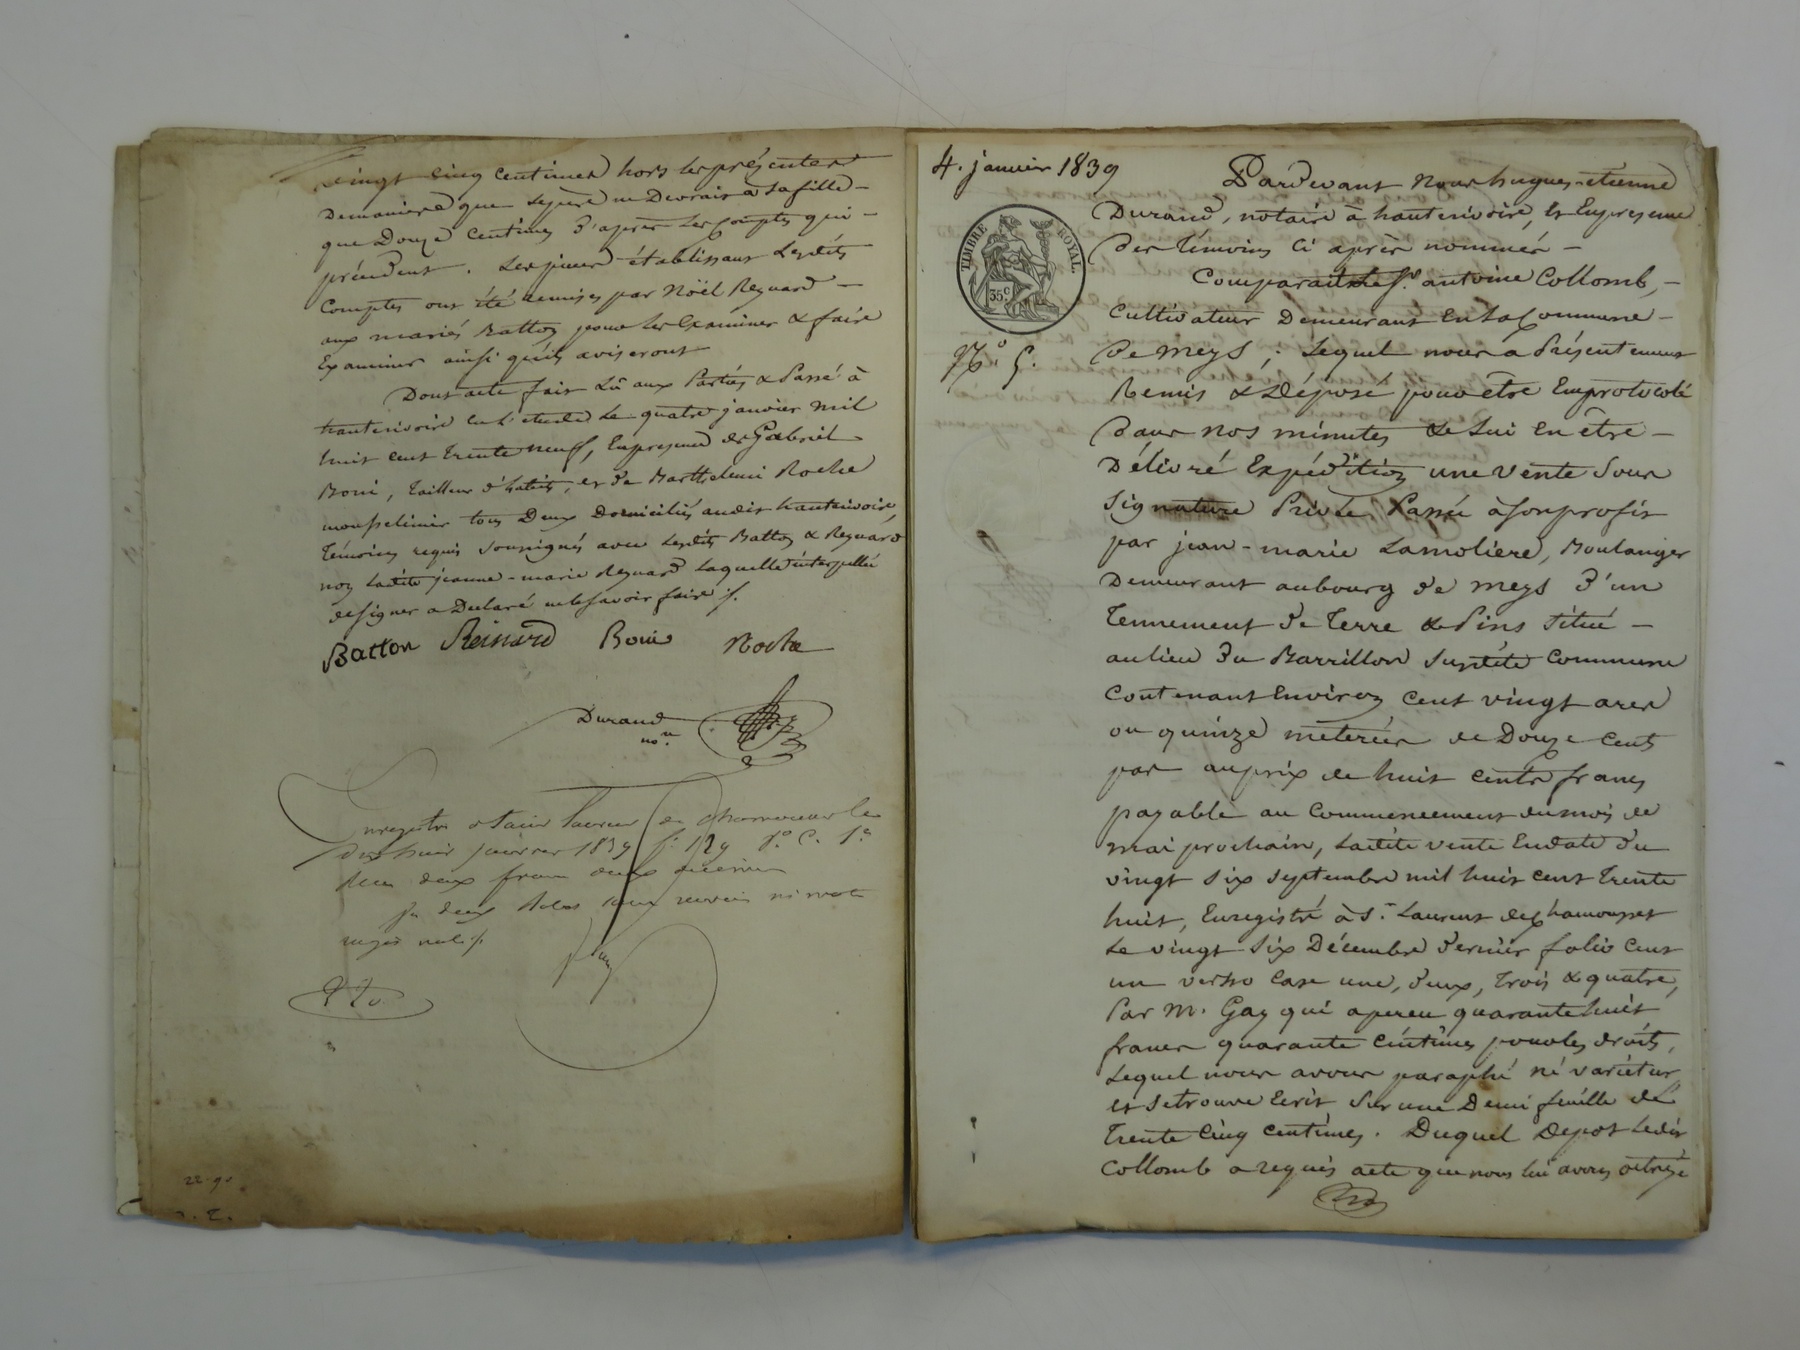 vingt cinq centimes hors les présentes
demaniere que le père ne Devrait à sa fille -
que Douze Centimes d'apres les Comptes qui -
précèdent. Les pieces établissant Lesdits
Comptes ont été remises par Noël Reynard -
aux mariés Batton pour les Examiner & faire
Examiner ainsi qu'ils aviseront
Dont acte fait Lû aux Parties & Passé à
hauterivoire en l'etude Le quatre janvier mil
huit cent trente neuf, Enpresence de Gabriel
Boui, tailleur d'habits, et de Barthelemi Roche
mousselinier tous Deux Domiciliés audit hauterivoire,
témoins requis soussignés avec Lesdits Batton & Reynard
non Ladite jeanne-marie Reynard Laquelle interpellée
designer a Déclaré ne le savoir faire ./.
Batton Reinard Boui Roche
Durand
no.re
Enregistré à Saint Laurent de Chamousset le
dix huit janvier 1839 f.o 129 r.o C. 1.e
Reçu deux francs deux décimes
sur deux Roles sans renvoi ni mot
rayés nuls ./.
22. 9.
4. janvier 1839
TIMBRE ROYAL.
35 c
N.o 5.
Pardevant Nous hugues-étienne
Durand, notaire à hauterivoire, Et Enpresence
des témoins Ci après nommés -
Comparait le S.r antoine Collomb, -
Cultivateur Demeurant En la Commune -
de meys ; Lequel nous a Présentement
Remis & Déposé pour être Enprotocolé
Dans nos minutes & Lui En être -
Délivré Expédition une vente Sous
Signature Privée Passée à Son profit
par jean-marie Lamoliere, Boulanger
Demeurant au bourg de meys d'un
tennement de terre & Pins Situé -
au lieu du Barrillon Susdite Commune
Contenant Environ Cent vingt ares
ou quinze méterées de Douze Cents
pas au prix de huit cents francs
payable au Commencement du mois de
mai prochain, Ladite vente En date du
vingt Six Septembre mil huit cent trente
huit, Enregistré à S.t Laurent de Chamousset
Le vingt Six Décembre dernier folio Cent
un verso Case une, deux, trois & quatre,
Par M. Gay qui a perçu quarante huit
francs quarante Centimes pour les droits,
Lequel nous avons paraphé né variétur,
et Se trouve Ecrit Sur une Demi feuille de
trente Cinq centimes. Duquel Depot Ledit
Collomb a requis acte que nous lui avons octroyé